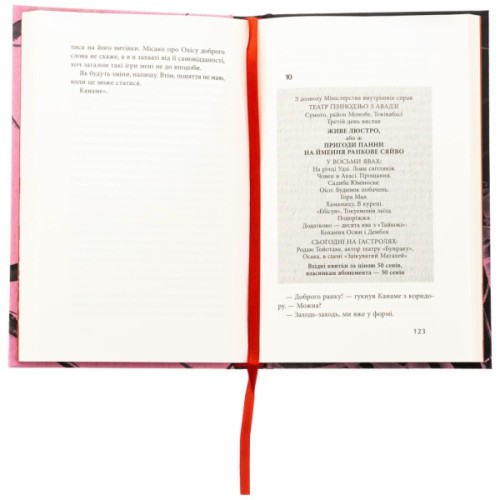 тися на його витівки. Місако про Охісу доброго
слова не скаже, а я в захваті від її самовідданості,
хоч загалом такі ігри мені не до вподоби.
Як будуть зміни, напишу. Втім, поняття не маю,
коли це може статися.
Канаме».
10
З дозволу Міністерства внутрішніх справ
ТЕАТР ҐЕННОДЗЬО З АВАДЗІ
Сумото, район Монобе, Токівабасі
Третій день вистав
ЖИВЕ ЛЮСТРО,
або ж
ПРИГОДИ ПАННИ
НА ЙМЕННЯ РАНКОВЕ СЯЙВО
У ВОСЬМИ ЯВАХ:
На річці Удзі. Лови світляків
Човен в Акасі. Прощання
Садиба Юміноске
Оісо. Будинок побачень
Гора Мая
Хамамацу. В курені
«Ебісуя». Токуемонів заїзд
Подоріжжя
Додатково — десята ява з «Тайкокі»:
Кохання Осями і Дембея
СЬОГОДНІ НА ГАСТРОЛЯХ:
Родаю Тойотаке, актор театру «Бунраку»,
Осака, в сцені «Заїкуватий Матахей»
Вхідні квитки за ціною 50 сенів,
власникам абонемента — 50 сенів
— Доброго ранку! — гукнув Канаме з коридо-
ру. — Можна?
— Заходь-заходь, ми вже у формі,
123